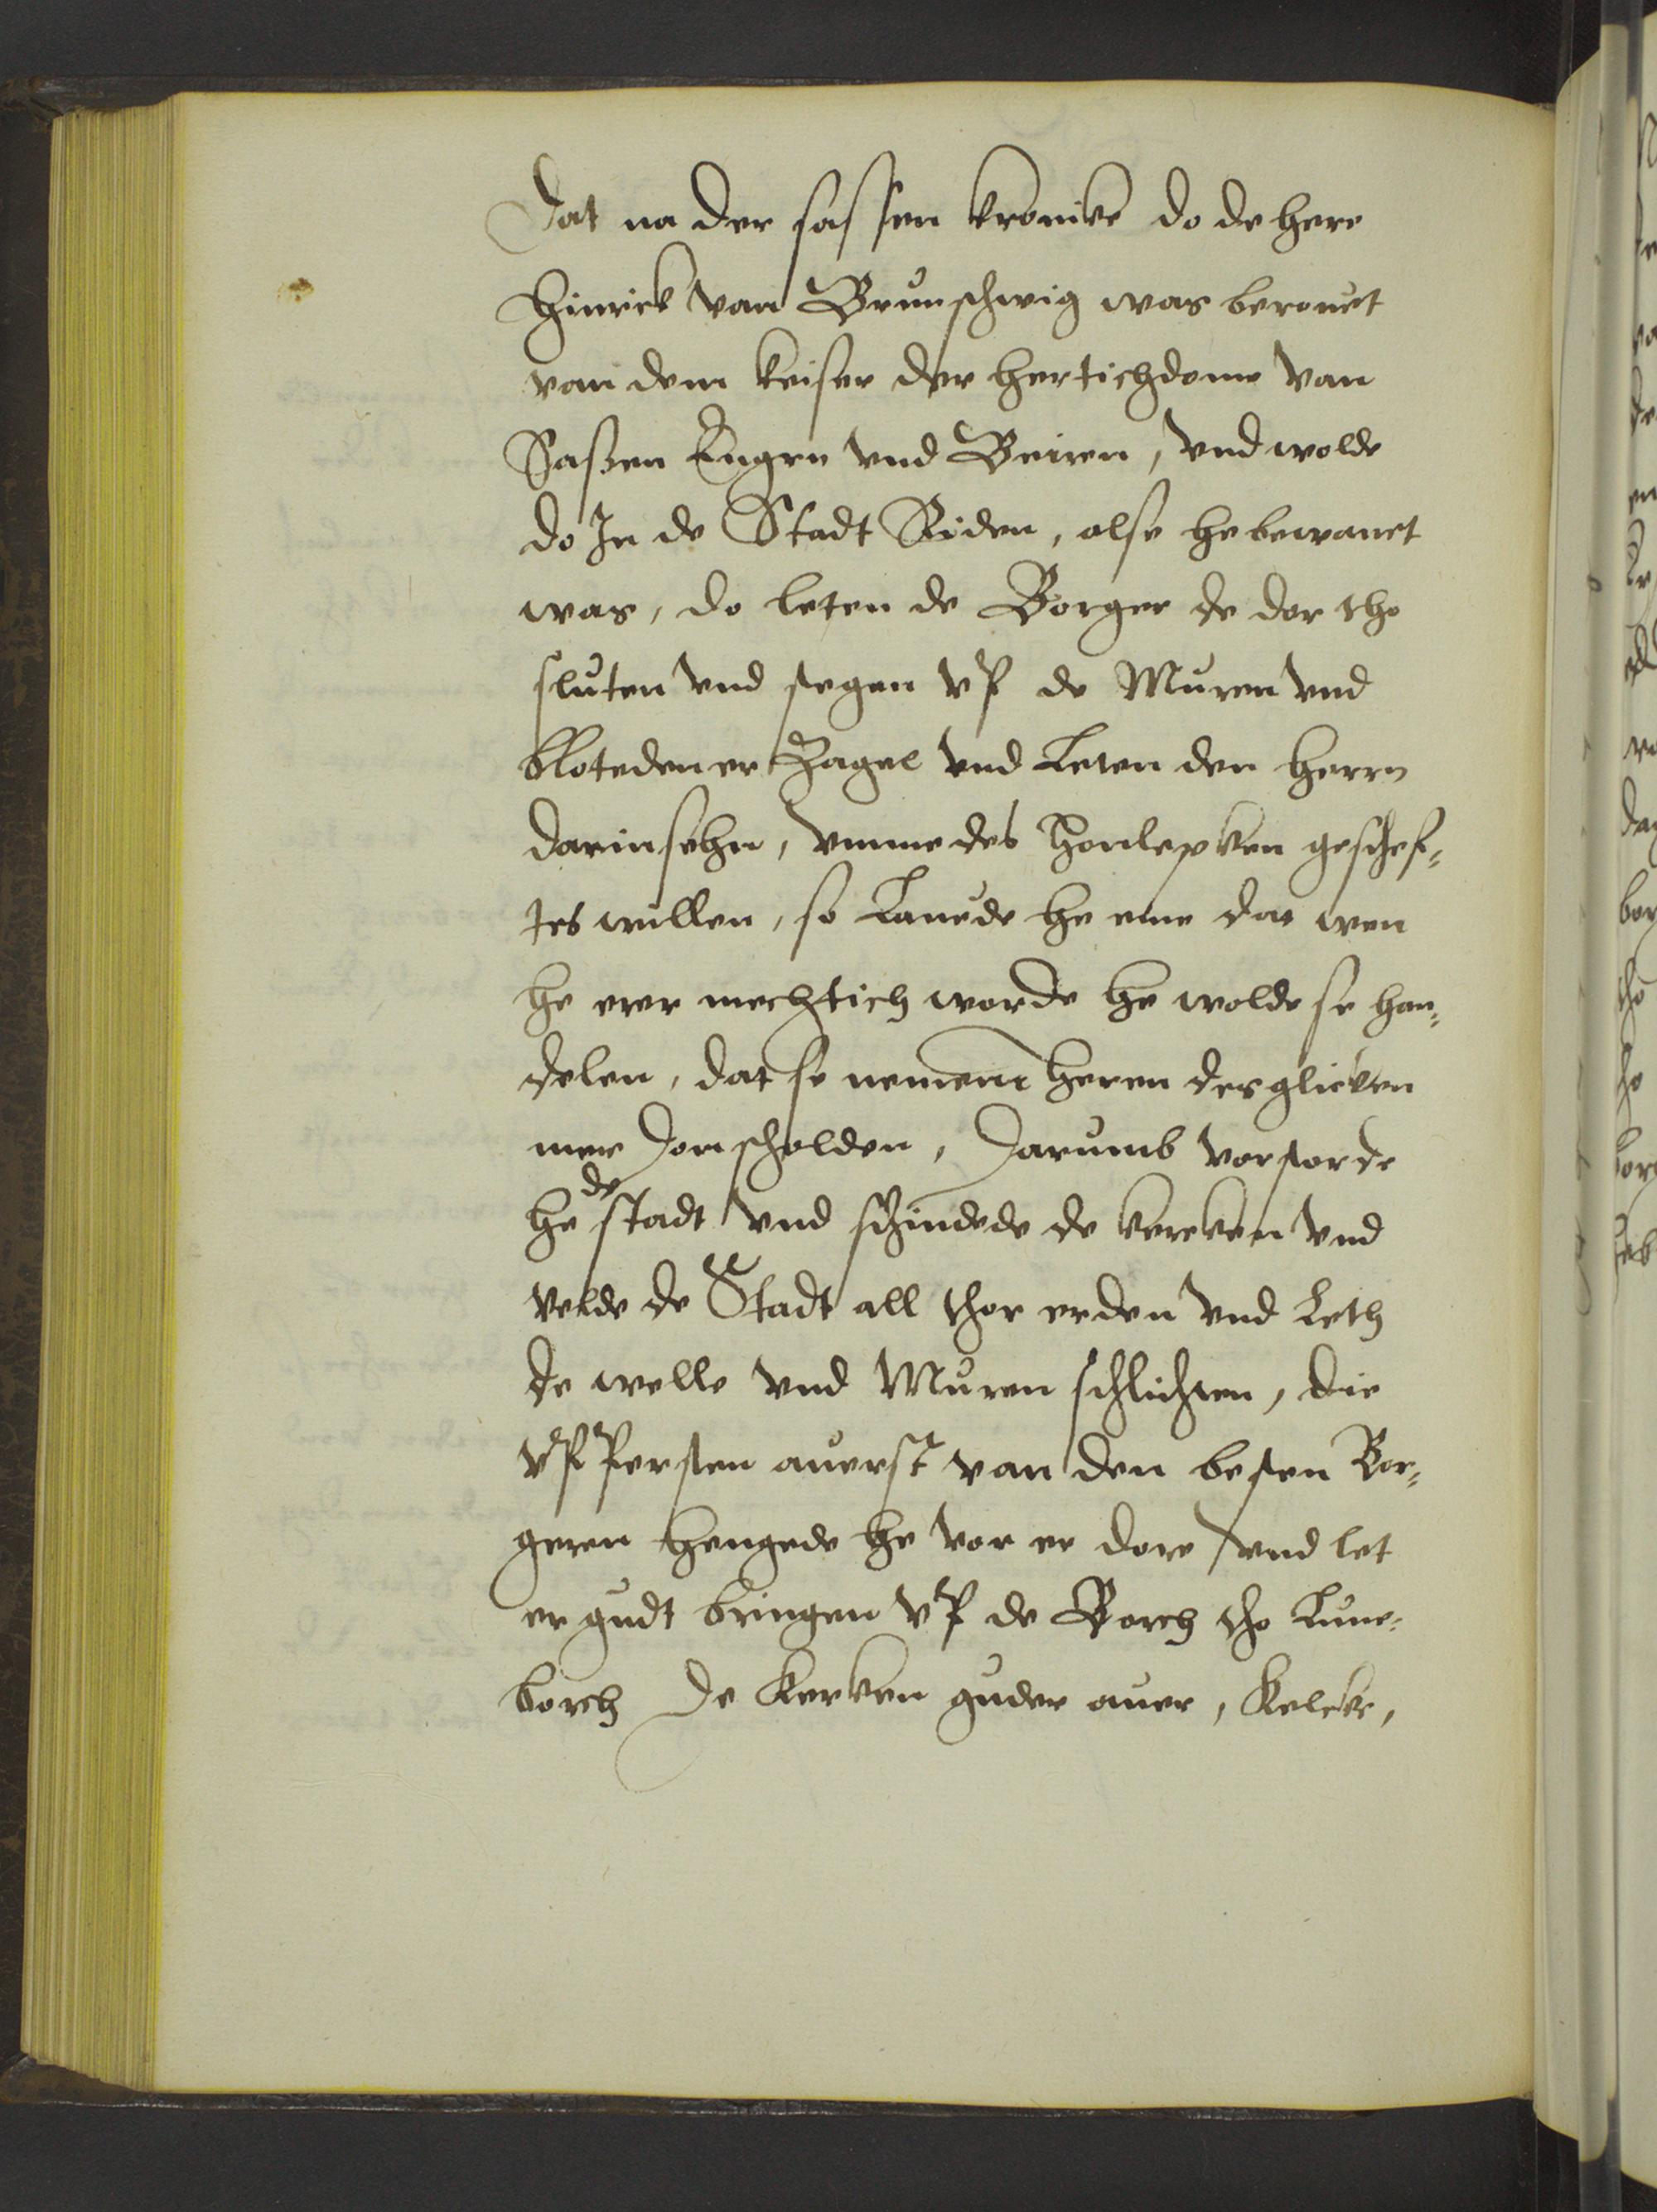 Dat na der sassen kronike do de here
Hinrick van Brunschwig was berouet
van dem keiser der hertichdome van
Saßen Engern vnd Beiren, vnd wolde
do In de Stadt Riden, alse he bewanet
was, do leten de Borger de dor tho
sluten vnd stegen vp de Muren vnd
bloteden er Zagel vnd Leten den herrn
darin sehn, vmme des honlepken geschef¬
tes willen, so Lauede he eme dat wen
he erer mechtich worde he wolde se han¬
delen, dat se nemene heren des glicken
mer Don scholden, Darumb vorstorde
he de stadt vnd schindede de kercken vnd
velde de Stadt all thor erden vnd Leth
de welle vnd Muren schlichten, die
vppersten auerst van den besten Bor¬
geren hengede he vor er dore vnd let
er gudt bringen vp de Borch tho Lune¬
borch De Kercken guder auer, Kelcke,